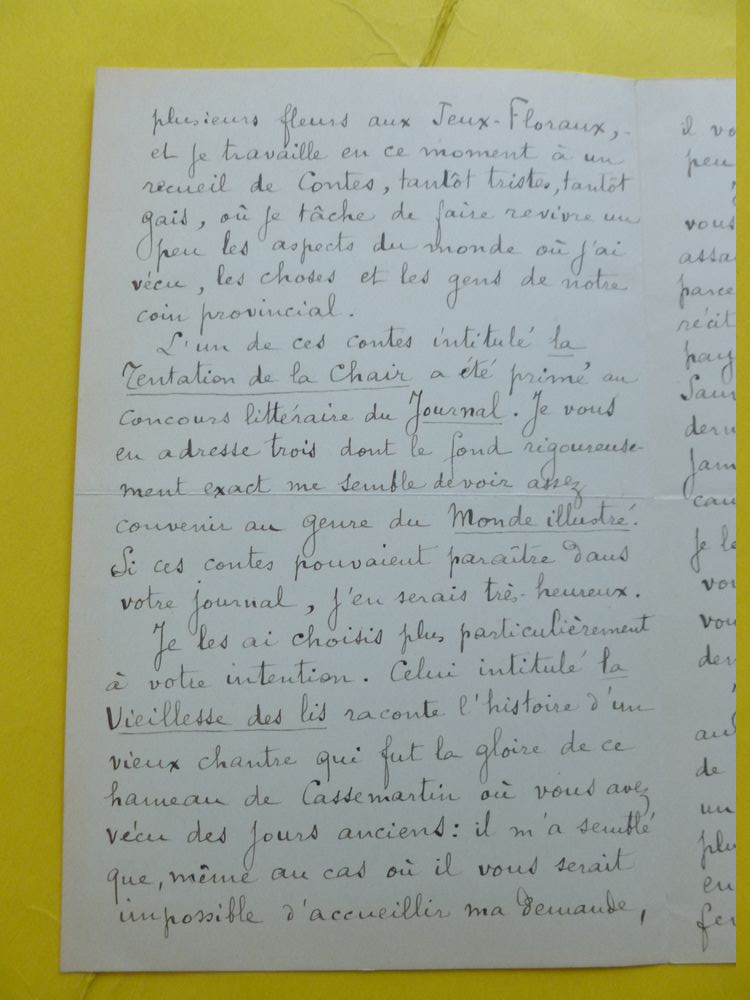 plusieurs fleurs aux Jeux-Floraux,
et je travaille en ce moment à un
recueil de Contes, tantôt tristes, tantôt
gais, où je tâche de faire revivre un
peu les aspects du monde où j'ai
vécu, les choses et les gens de notre
coin provincial.
L'un de ces contes intitulé la
Tentation de la Chair a été primé au
concours littéraire du Journal. Je vous
en adresse trois dont le fond rigoureuse-
ment exact me semble devoir assez
convenir au genre du Monde illustré.
Si ces contes pouvaient paraître dans
votre journal, j'en serais très-heureux.
Je les ai choisis plus particulièrement
à votre intention. Celui intitulé la
Vieillesse des lis raconte l'histoire d'un
vieux chantre qui fut la gloire de ce
hameau de Cassemartin où vous avez
vécu des jours anciens: il m'a semblé
que, même au cas où il vous serait
impossible d'accueillir ma demande,
il vo
peu
vous
assa
parce
récit
pay
dern
cau
je le
vou
vou
der
de
un
plu
en